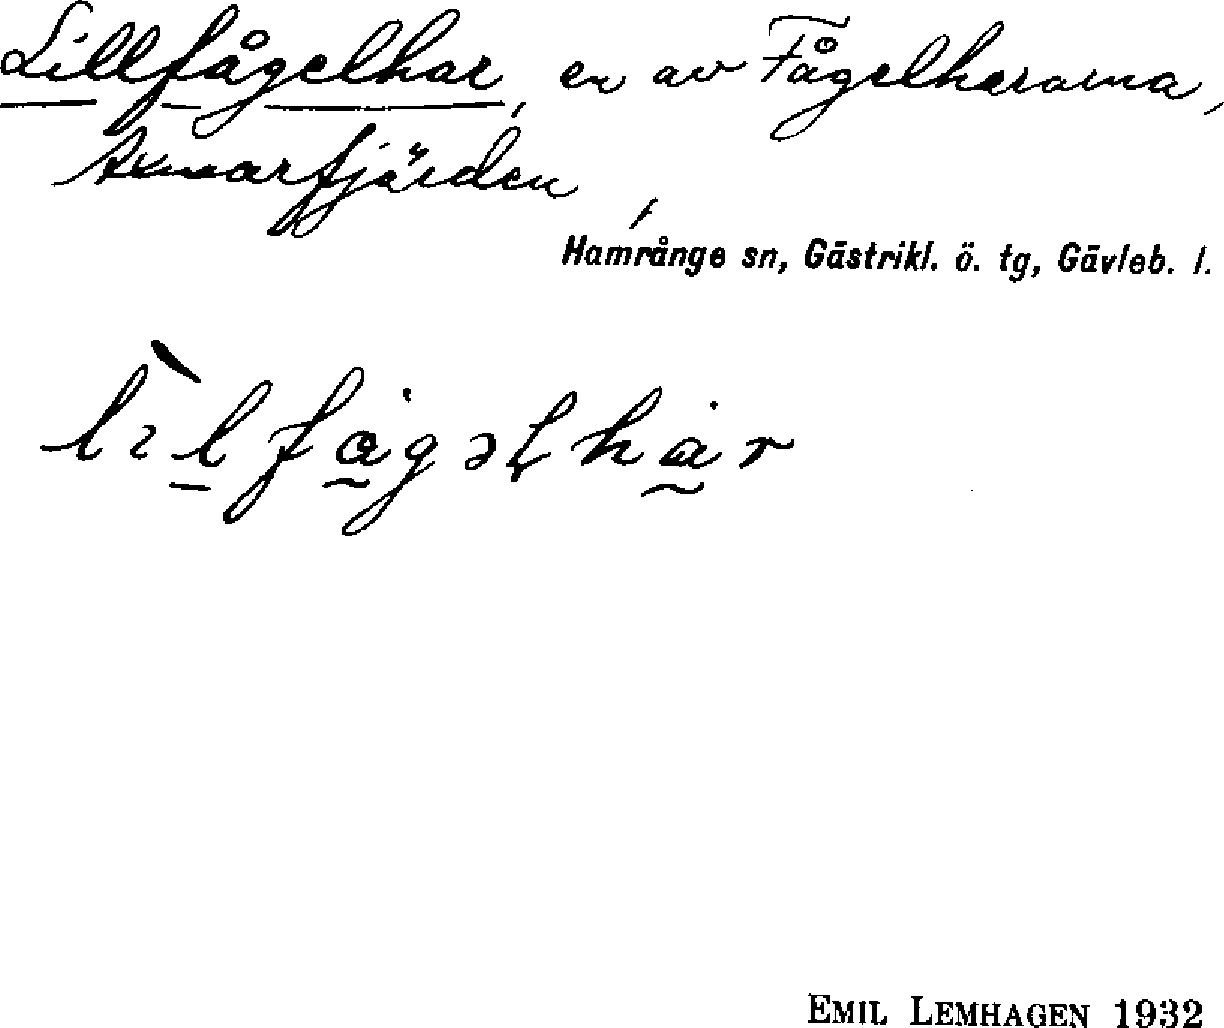 Lillfågelhar, en av Fågelhararna,
Axmarfjärden,
Hamrånge sn, Gästrikl. ö. tg, Gävleb. l.
EMIL LEMHAGEN 1932